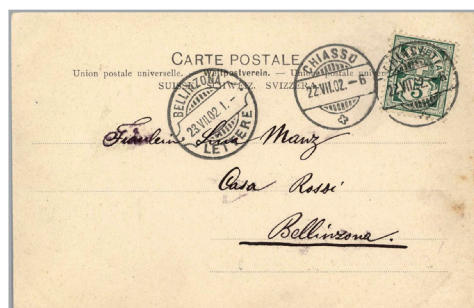 CARTE POSTALE
Union postale universelle. — Weltpostverein. — Unione postale universale.
SUISSE. SCHWEIZ. SVIZZERA.
BELLINZONA
23.VII.02.I.-
LETTERE
CHIASSO
22.VII.02.-6
5
Fräulein Lina Manz
Casa Rossi
Bellinzona.